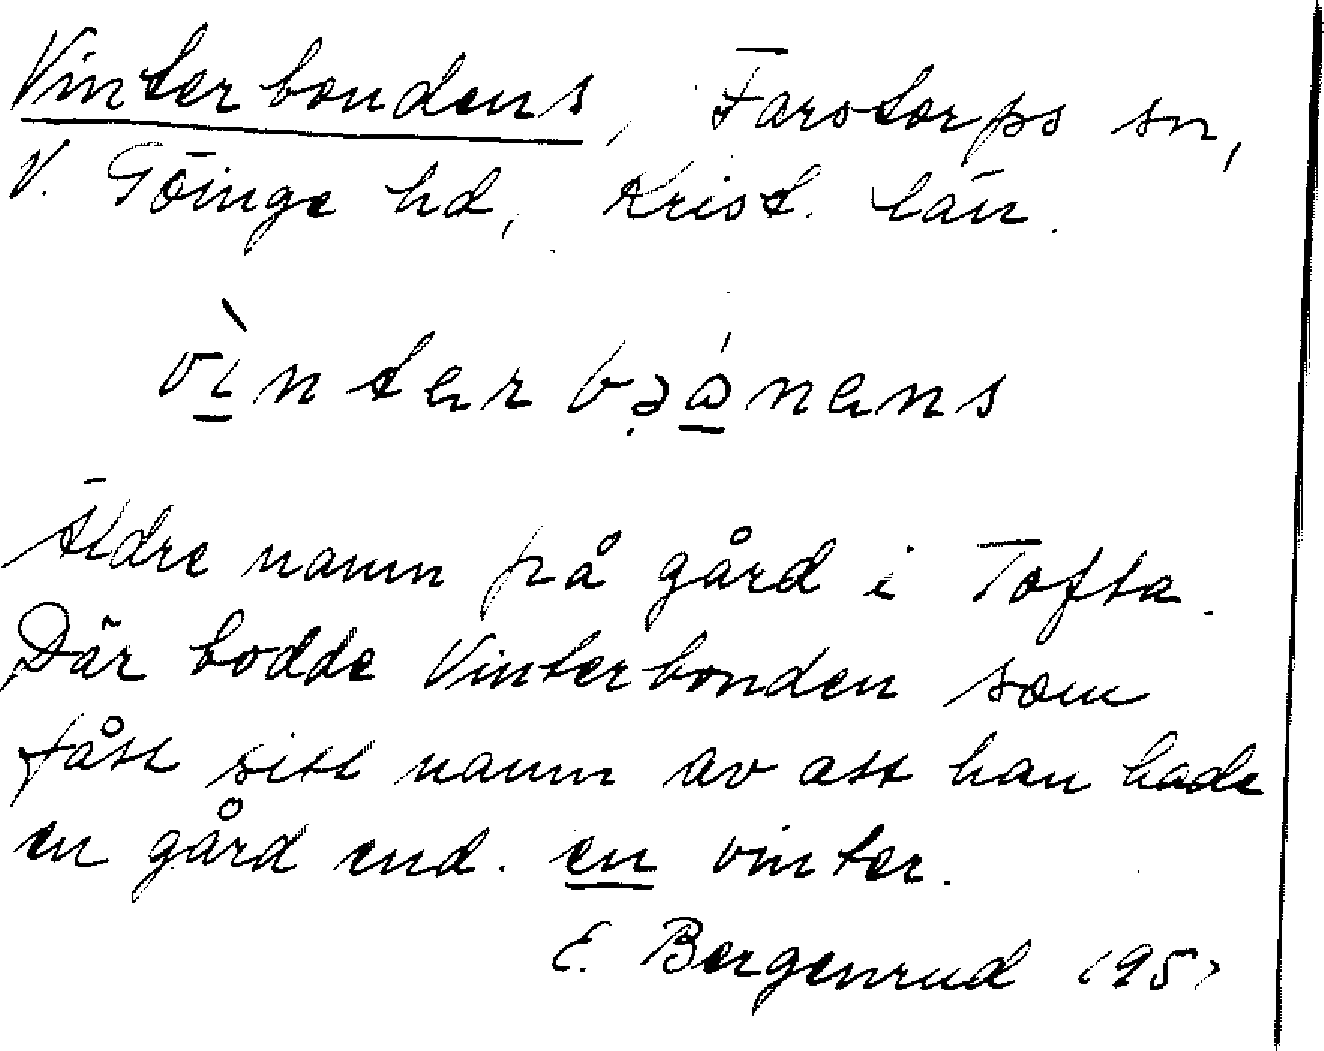 Vinterbondens, Farstorps sn,
V. Göinge hd, Krist. län.
vìnterbɔánens
Äldre namn på gård i Tofta.
Där bodde Vinterbonden som
fått sitt namn av att han hade
en gård end. en vinter.
E. Bergenrud 1951